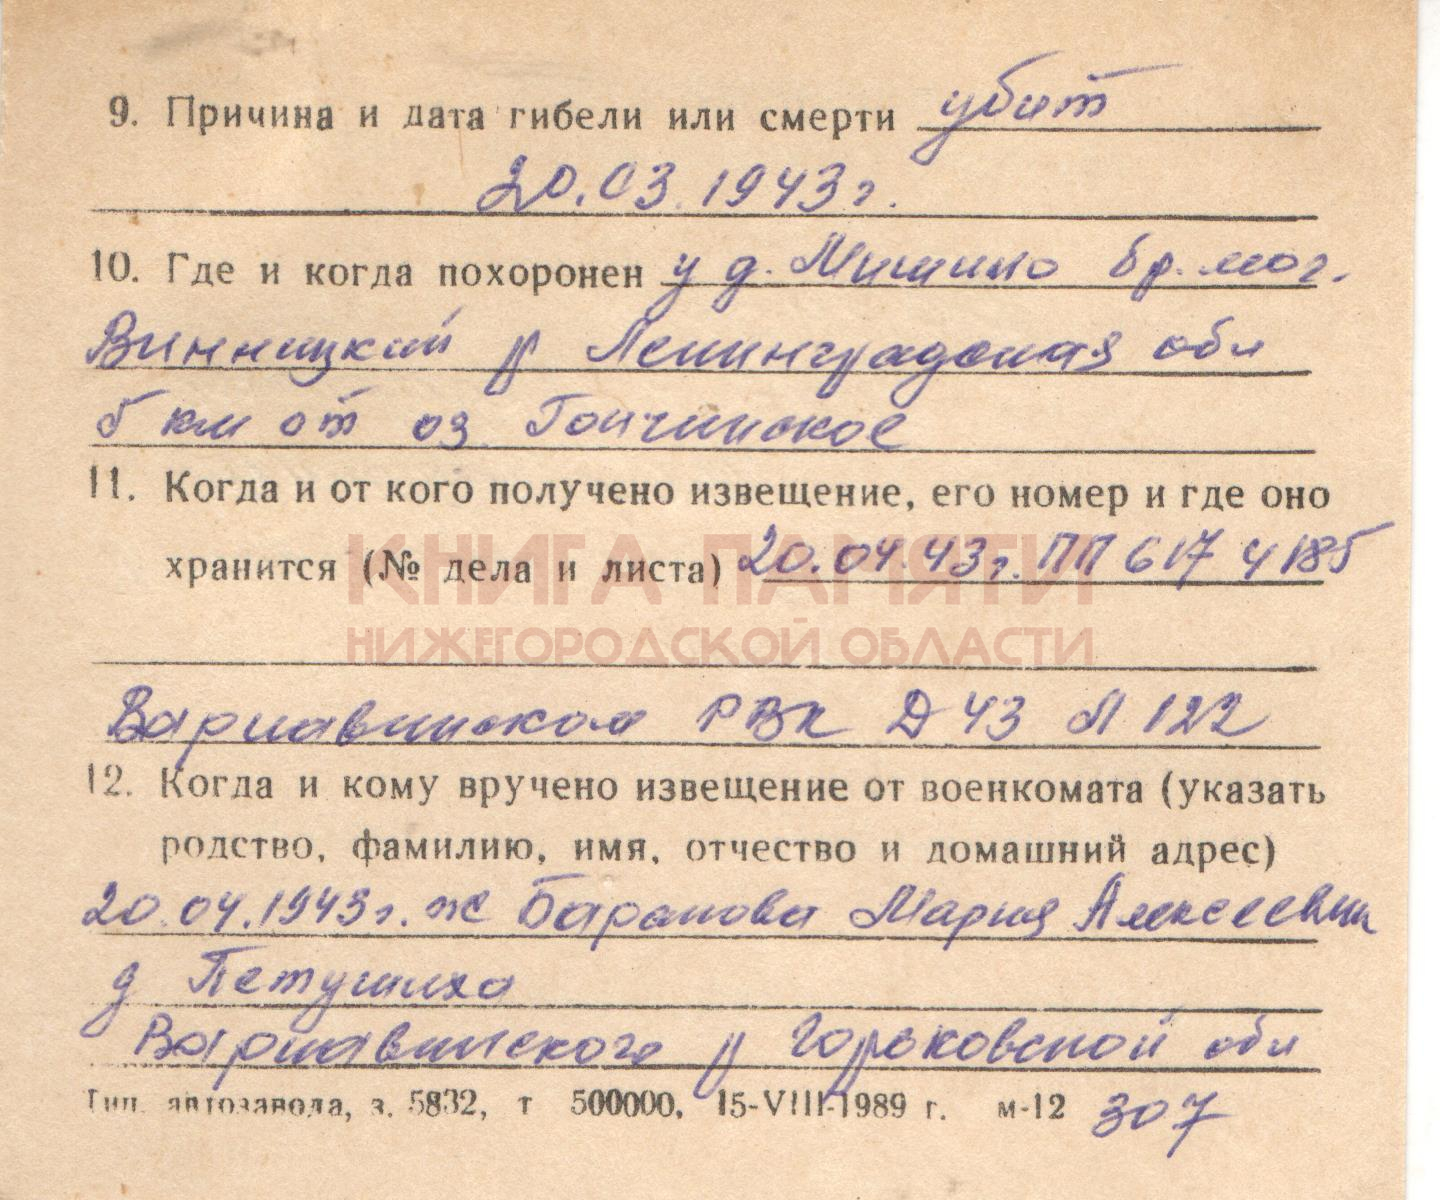 9. Причина и дата гибели или смерти убит
20.03.1943г.
10. Где и когда похоронен у д. Мишино бр. мог.
Винницкий р Ленинградская обл
5 км от оз. Гончинское
11. Когда и от кого получено извещение, его номер и где оно
хранится (№ дела и листа) 20.04.43г. ПП 617 ч 185
КНИГА ПАМЯТИ
НИЖЕГОРОДСКОЙ ОБЛАСТИ
Варнавинском РВК Д 43 Л 122
12. Когда и кому вручено извещение от военкомата (указать
родство, фамилию, имя, отчество и домашний адрес)
20.04.1943г. ж Баранова Мария Алексеевна
д Петушиха
Варнавинского р Горьковской обл
Тип. автозавода, з. 5832, т 500000, 15-VIII-1989 г. м-12 307